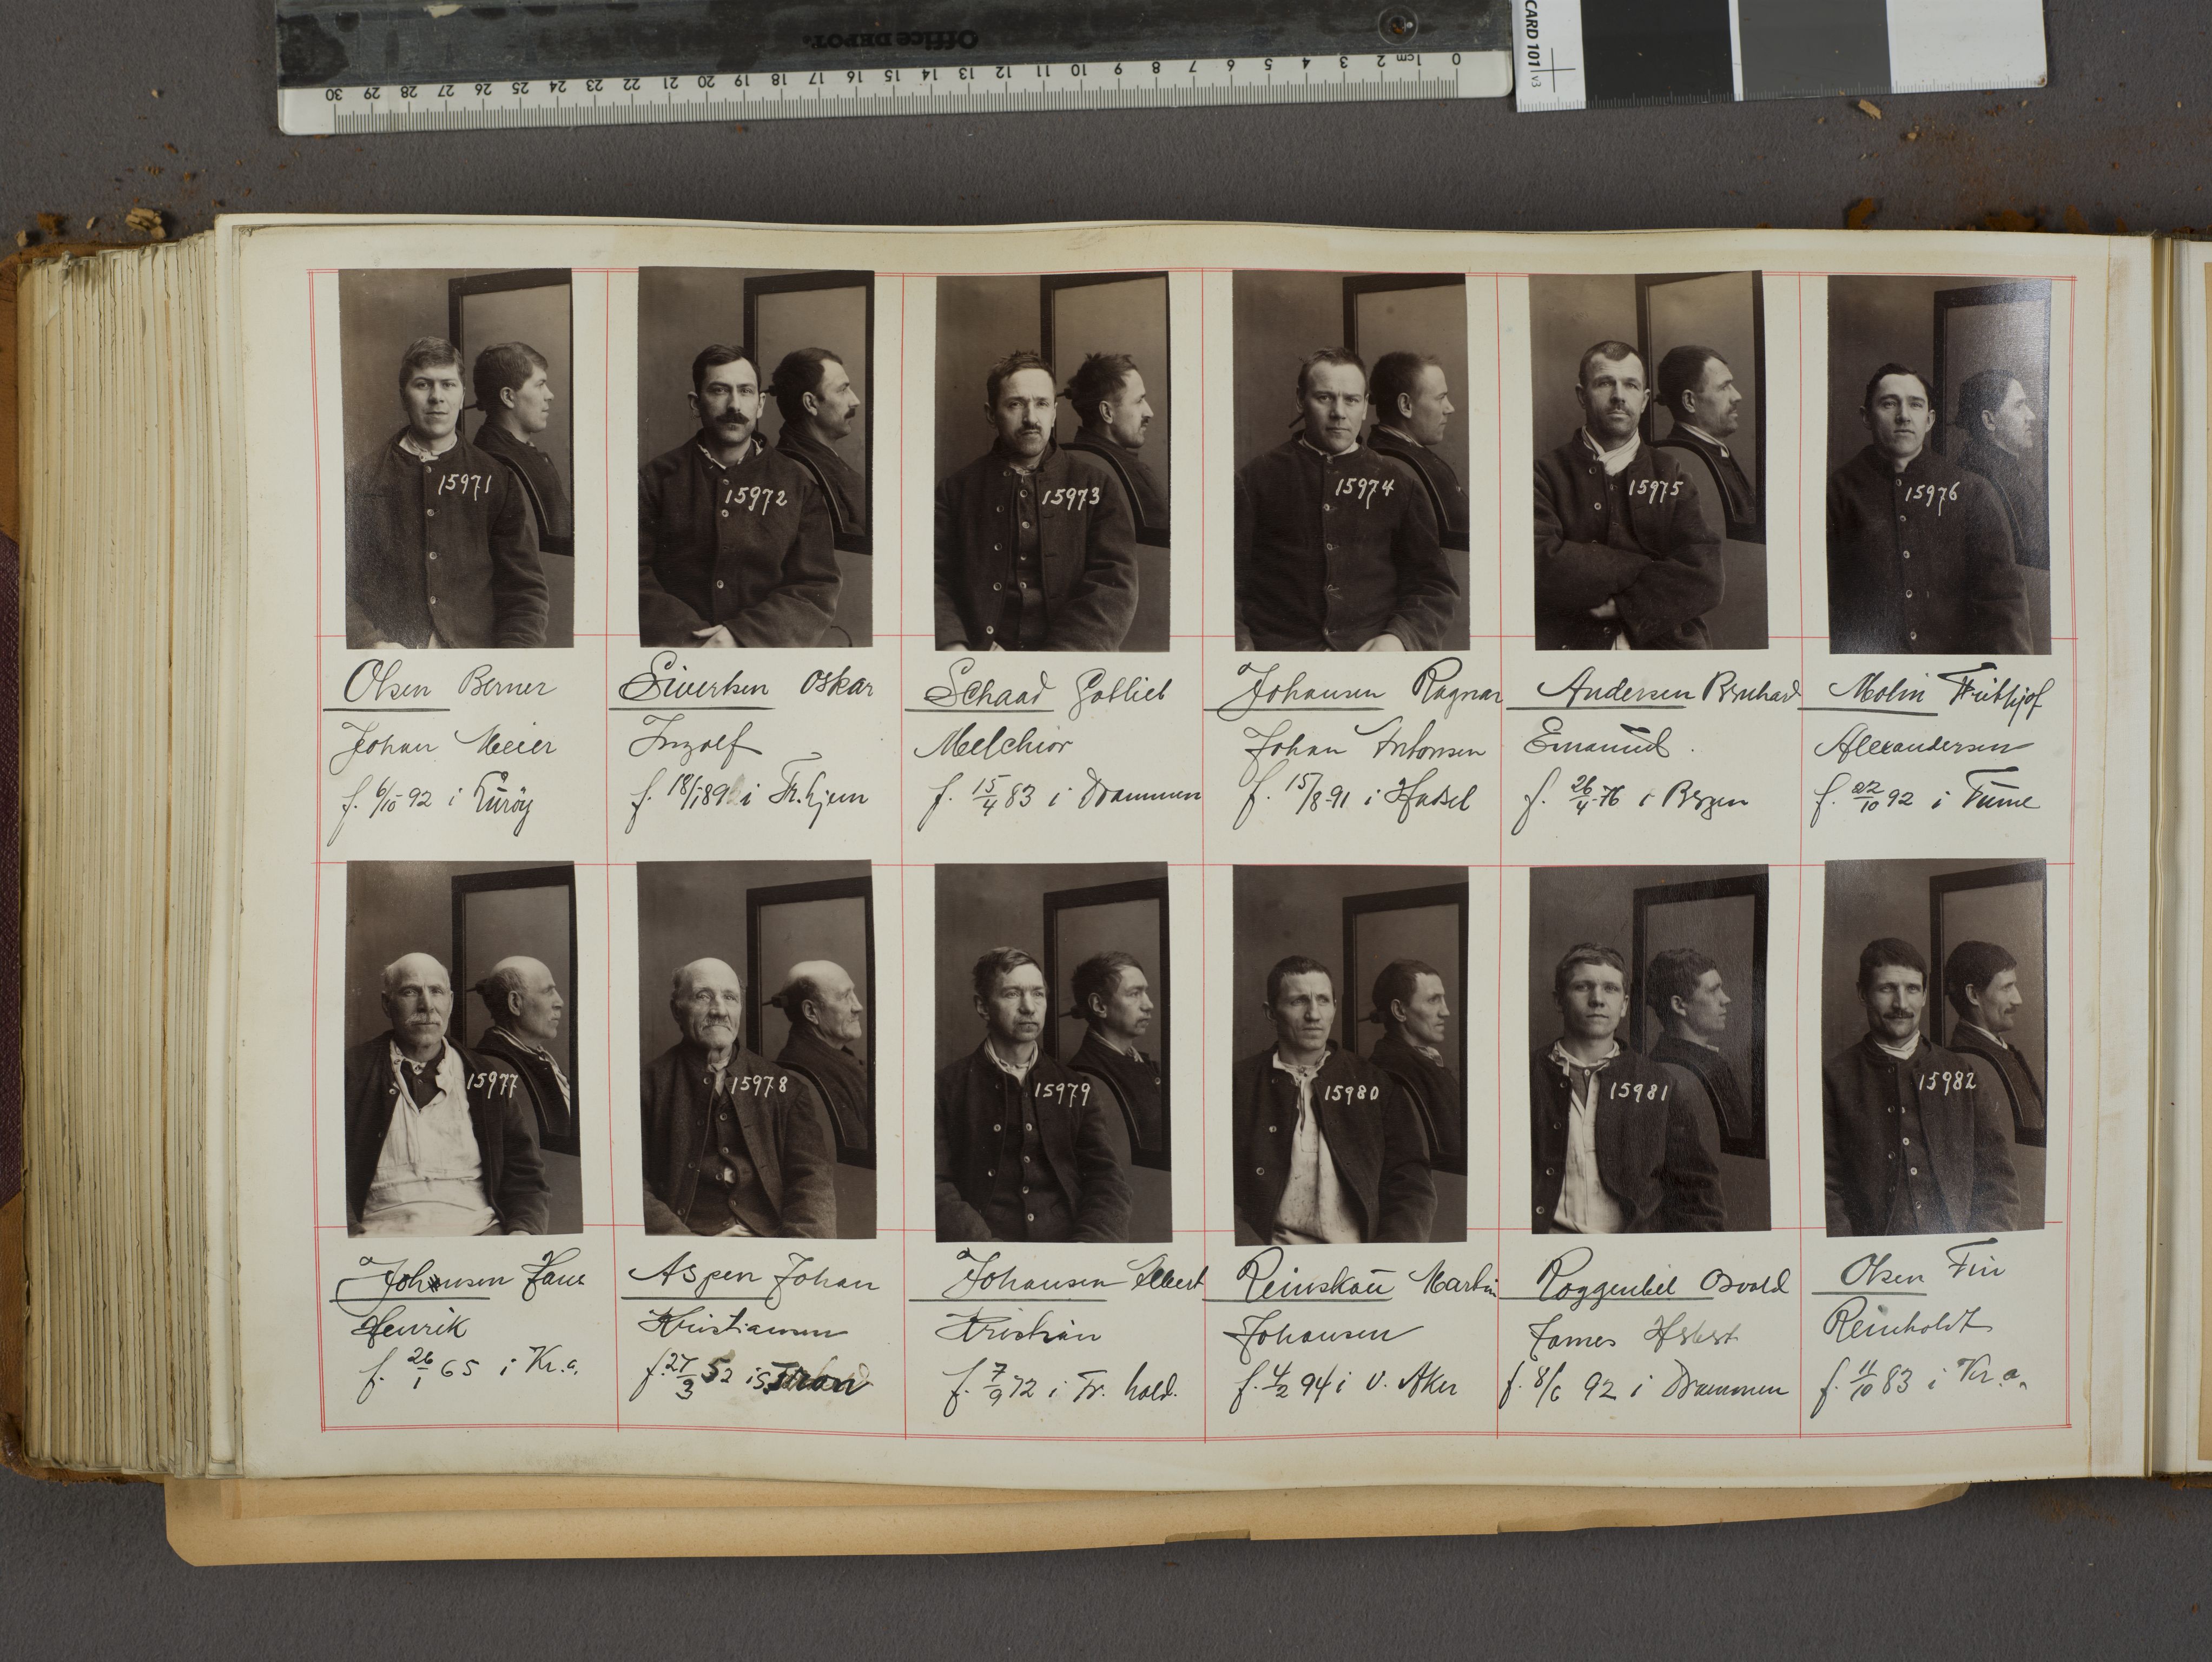 Office DEPOT.
30 29 28 27 26 25 24 23 22 21 20 19 18 17 16 15 14 13 12 11 10 9 8 7 6 5 4 3 2 1cm 0
CARD 101 v3
15971
15972
15973
15974
15975
15976
Olsen Berner
Johan Meier
f. 6/10 92 i Lurøy
Sivertsen Oskar
Ingolf
f. 18/1 89 i Tr.hjem
Schaad Gotlieb
Melchior
f. 15/4 83 i Drammen
Johansen Ragnar
Johan Antonsen
f. 15/8 91 i Hadsel
Andersen Bernhard
Emanuel.
f. 26/4 76 i Bergen
Molin Frithjof
Alexandersen
f. 22/10 92 i
15977
15978
15979
15980
15981
15982
Johansen Hans
Henrik
f. 26/1 65 i Kr.a.
Aspen Johan
Kristiansen
f. 27/3 52 i
Johansen Albert
Kristian
f. 7/9 72 i Fr. hald.
Reinskau Martin
Johansen
f. 4/2 94 i V. Aker
Roggenbil Osvald
James Herbert
f. 8/6 92 i Drammen
Olsen Fin
Reinholdt
f. 11/10 83 i Kr.a.